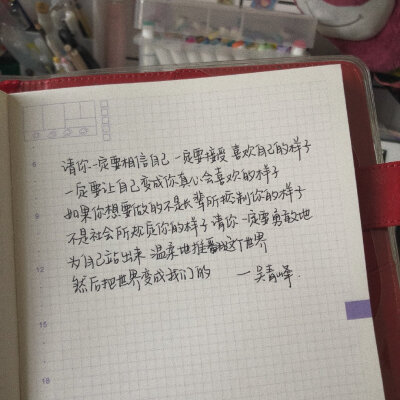 请你一定要相信自己 一定要接受 喜欢自己的样子
一定要让自己变成你真心会喜欢的样子
如果你想要做的不是长辈所控制你的样子
不是社会所规定你的样子 请你一定要勇敢地
为自己站出来 温柔地推翻这个世界
然后把世界变成我们的 — 吴青峰.
6
9
12
15
18